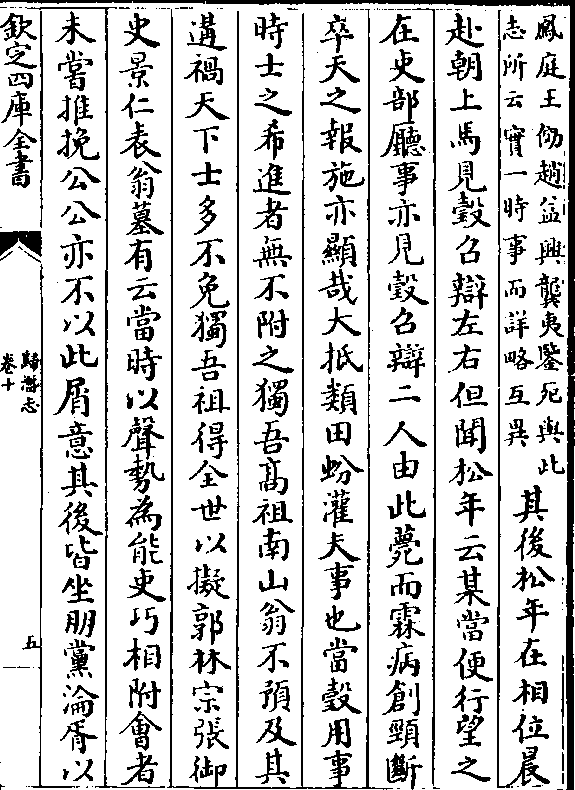 鳳庭王倣趙益興龔夷鑒死與此
志所云實一時事而詳略互異
其後松年在相位晨
赴朝上馬見瑴召辯左右但聞松年云某當便行望之
在吏部廳事亦見瑴召辯二人由此薨而霖病創頸斷
卒天之報施亦顯哉大抵類田蚡灌夫事也當瑴用事
時士之希進者無不附之獨吾髙祖南山翁不預及其
遘禍天下士多不免獨吾祖得全世以擬郭林宗張御
史景仁表翁墓有云當時以聲勢為能吏巧相附會者
未嘗推挽公公亦不以此屑意其後皆坐朋黨淪胥以
欽定四庫全書
歸潛志
卷十
五